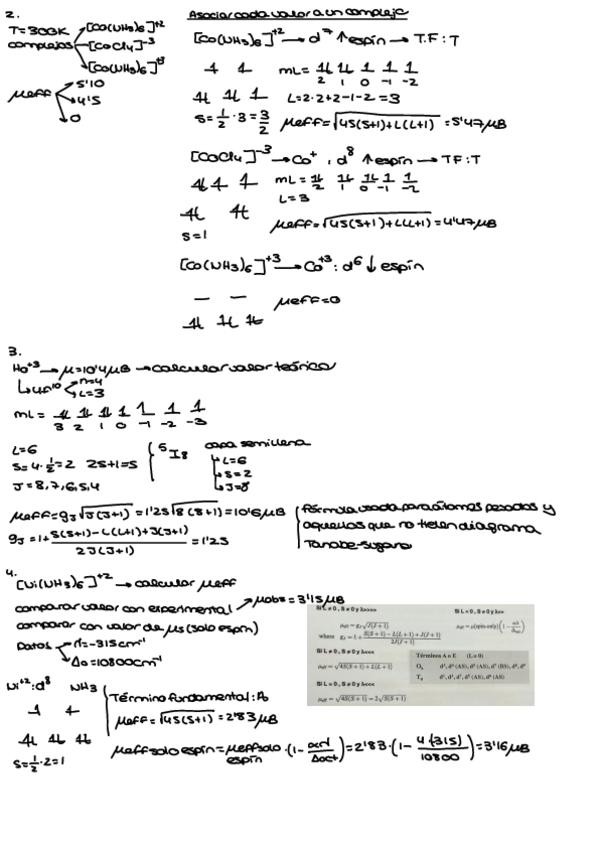 2.
T=300K
complejos
[Co(NH3)6]+2
[CoCl4]-3
[Co(NH3)6]+3
μeff
5'10
4'5
0
Asociar cada valor a un complejo
[Co(NH3)6]+2 → d7 ↑espín → T.F: T
mL = 2 1 0 -1 -2
L=2·2+2-1-2=3
S=1/2·3=3/2 μeff=√4S(S+1)+L(L+1) = 5'47μB
[CoCl4]-3 → Co+, d8 ↑espín → TF: T
mL = 2 1 0 -1 -2
L=3
S=1
μeff=√4S(S+1)+L(L+1)=4'47μB
[Co(NH3)6]+3 → Co+3: d6 ↓espín
μeff=0
3.
Ho+3 → μ=10'4μB → calcular valor teórico
4f10 n=4
L=3
mL = 3 2 1 0 -1 -2 -3
L=6
S=4·1/2=2 2S+1=5
J=8,7,6,5,4
5I8
capa semillena
L=6
S=2
J=8
μeff=gJ√J(J+1)=1'25√8(8+1)=10'6μB
gJ=1+S(S+1)-L(L+1)+J(J+1)/2J(J+1)=1'25
fórmula usada para átomos pesados y
aquellos que no tienen diagrama
Tanabe-Sugano
4.
[Ni(NH3)6]+2 → calcular μeff
comparar valor con experimental → μobs=3'15μB
comparar con valor de μs (solo espín)
Datos
=-315cm-1
Δo=10800cm-1
Ni+2: d8 NH3
S=1/2·2=1
Término fundamental: A2
μeff=√4S(S+1)=2'83μB
μeff solo espín=μeff solo espín·(1-αλ/Δoct)=2'83·(1-4(-315)/10800)=3'16μB
Si L ≠ 0, S ≠ 0 y
μeff = gJ√J(J + 1)
where gJ = 1 + S(S + 1) - L(L + 1) + J(J + 1)/2J(J + 1)
Si L = 0, S ≠ 0 y
μeff = μ(spin-only)(1 - αλ/Δoct)
Si L ≠ 0, S ≠ 0 y
μeff = √4S(S + 1) + L(L + 1)
Si L = 0, S ≠ 0 y
μeff = √4S(S + 1) = 2√S(S + 1)
Términos A o E (L = 0)
Oh
Td